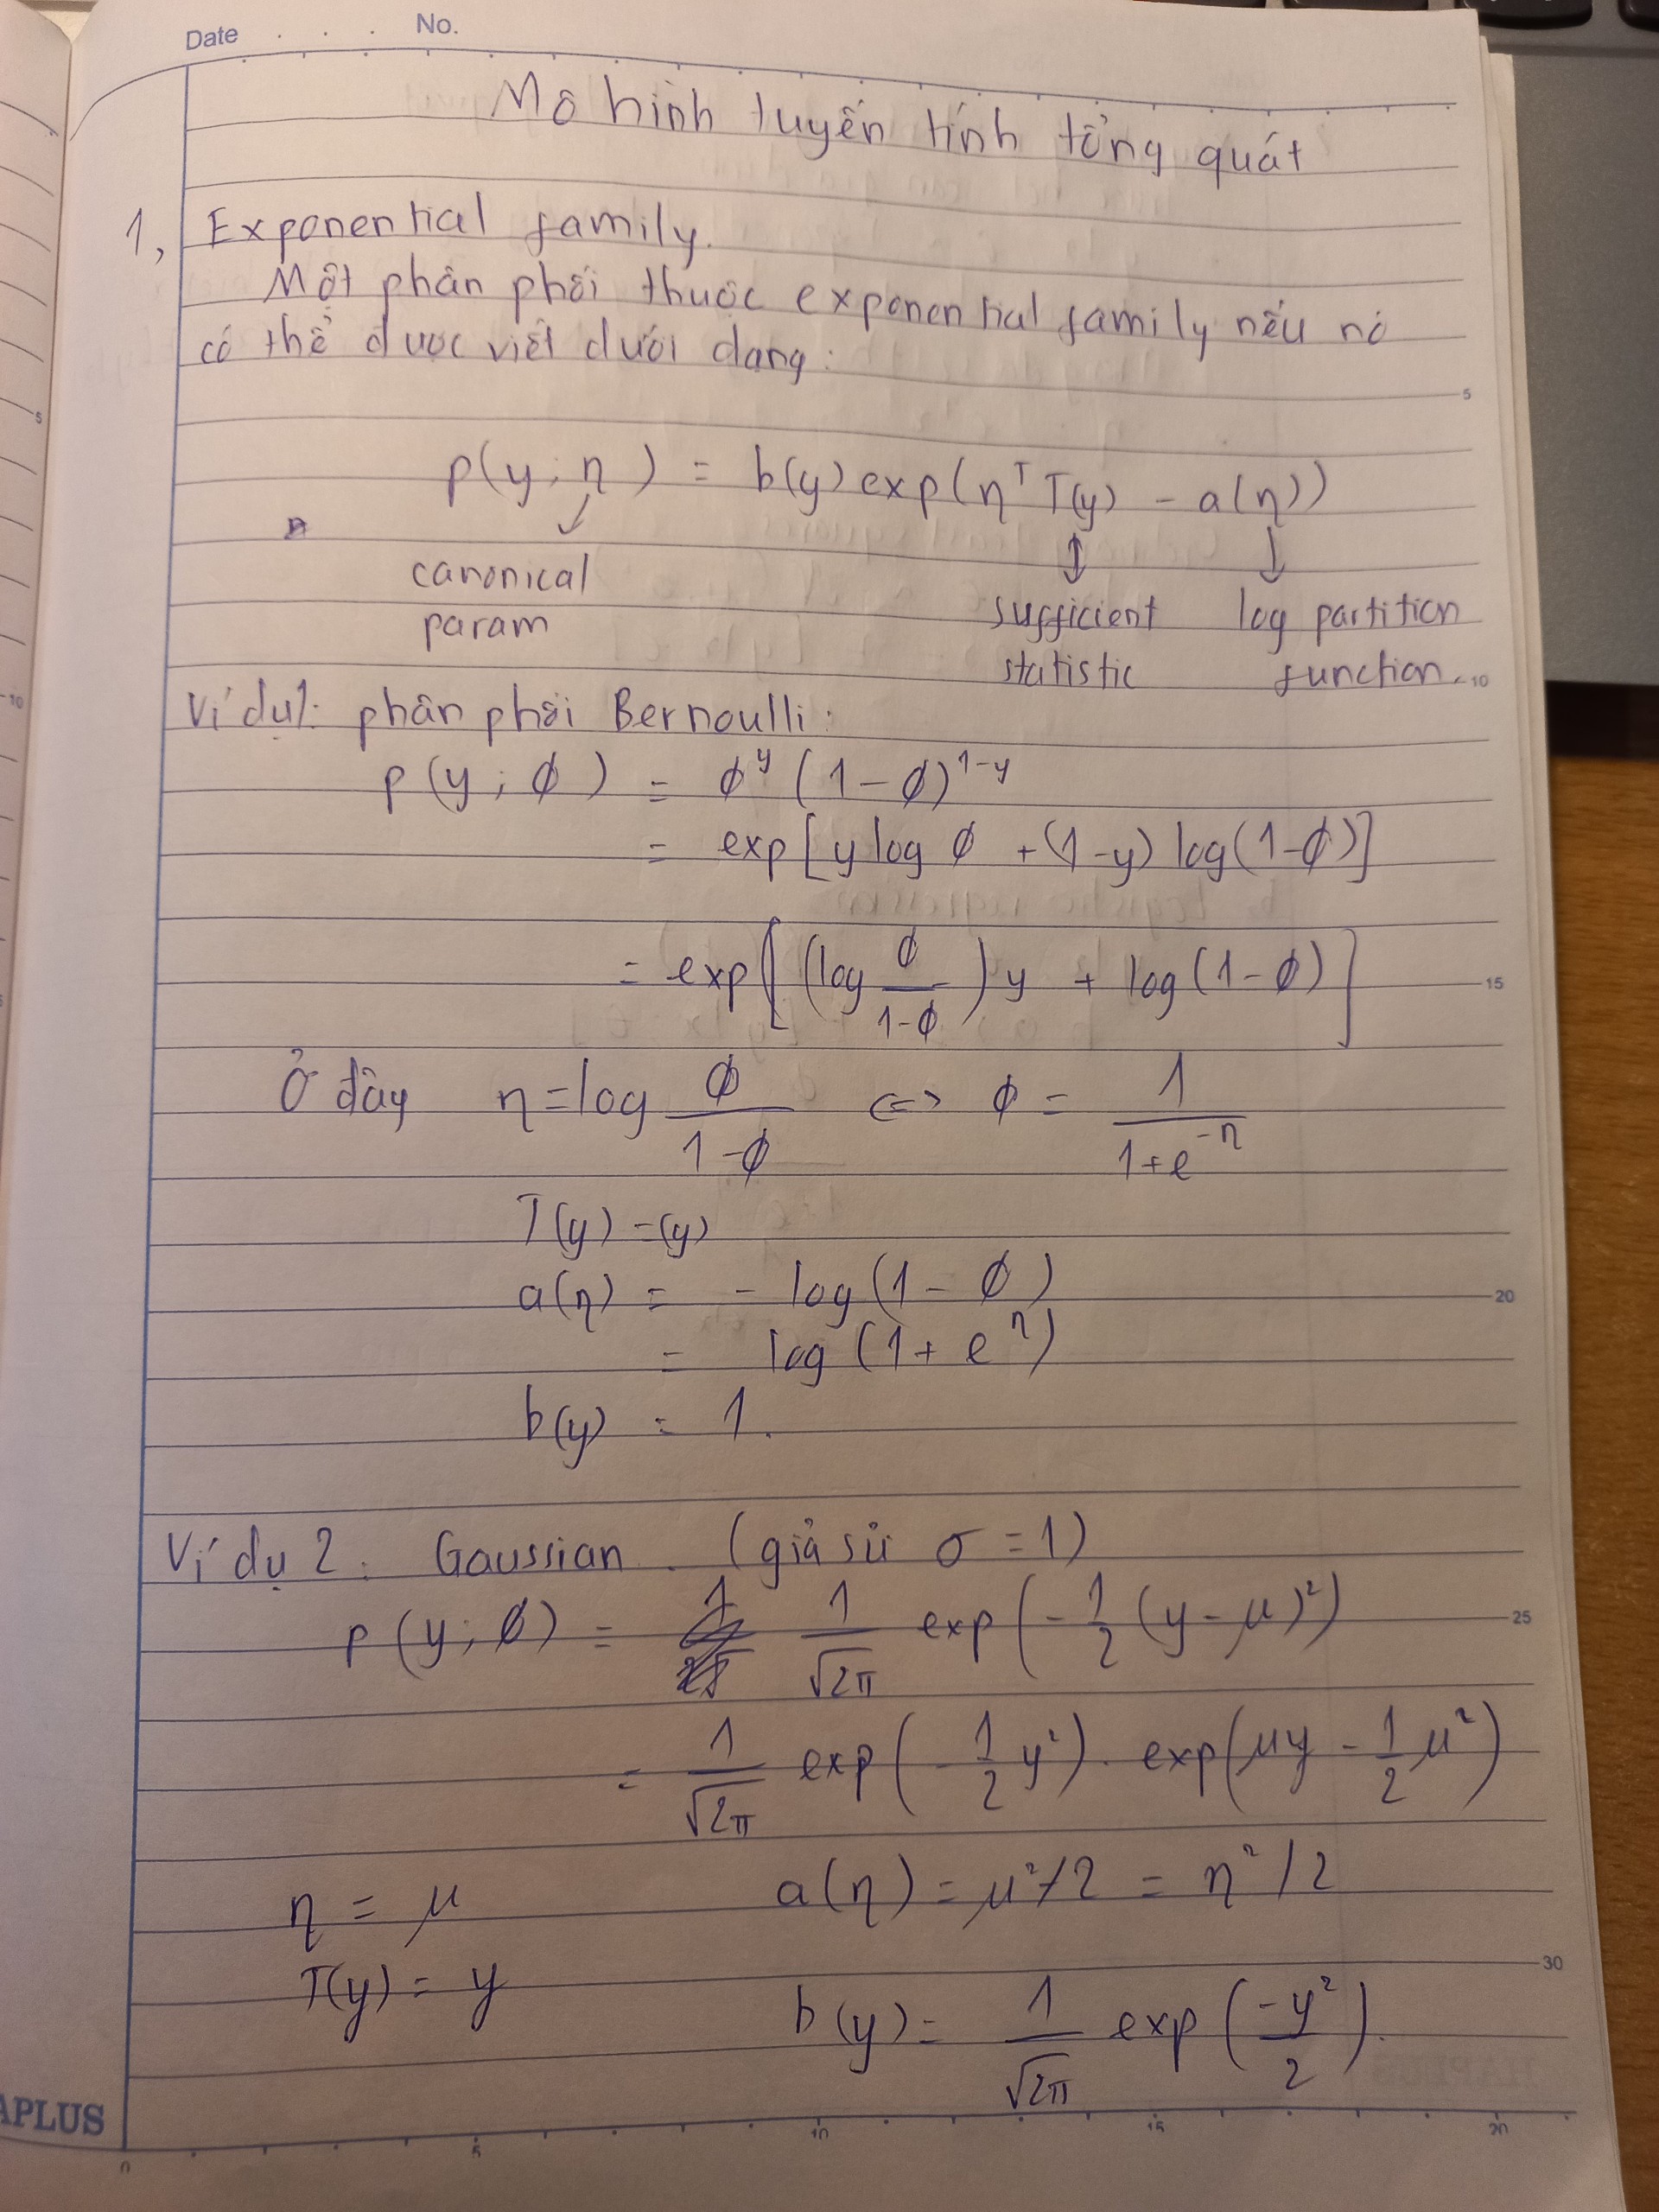 Date . . . No.
Mô hình tuyến tính tổng quát
1, Exponential family.
Một phân phối thuộc exponential family nếu nó
có thể được viết dưới dạng:
5
p(y; η) = b(y) exp(η^T T(y) - a(η))
canonical param
sufficient statistic
log partition function.
10
Ví dụ 1: phân phối Bernoulli:
p(y; ϕ) = ϕ^y (1-ϕ)^{1-y}
= exp[y log ϕ + (1-y) log(1-ϕ)]
= exp[(log ϕ/(1-ϕ)) y + log(1-ϕ)]
15
Ở đây η = log ϕ/(1-ϕ) <=> ϕ = 1/(1+e^{-η})
T(y) = (y)
a(η) = - log(1-ϕ)
20
= log(1+e^η)
b(y) = 1.
Ví dụ 2: Gaussian. (giả sử σ = 1)
p(y; ϕ) = 1/√2π exp(-1/2 (y-μ)²)
25
= 1/√2π exp(-1/2 y²) . exp(μy - 1/2 μ²)
η = μ a(η) = μ²/2 = η²/2
30
T(y) = y b(y) = 1/√2π exp(-y²/2).
APLUS
0 5 10 15 20